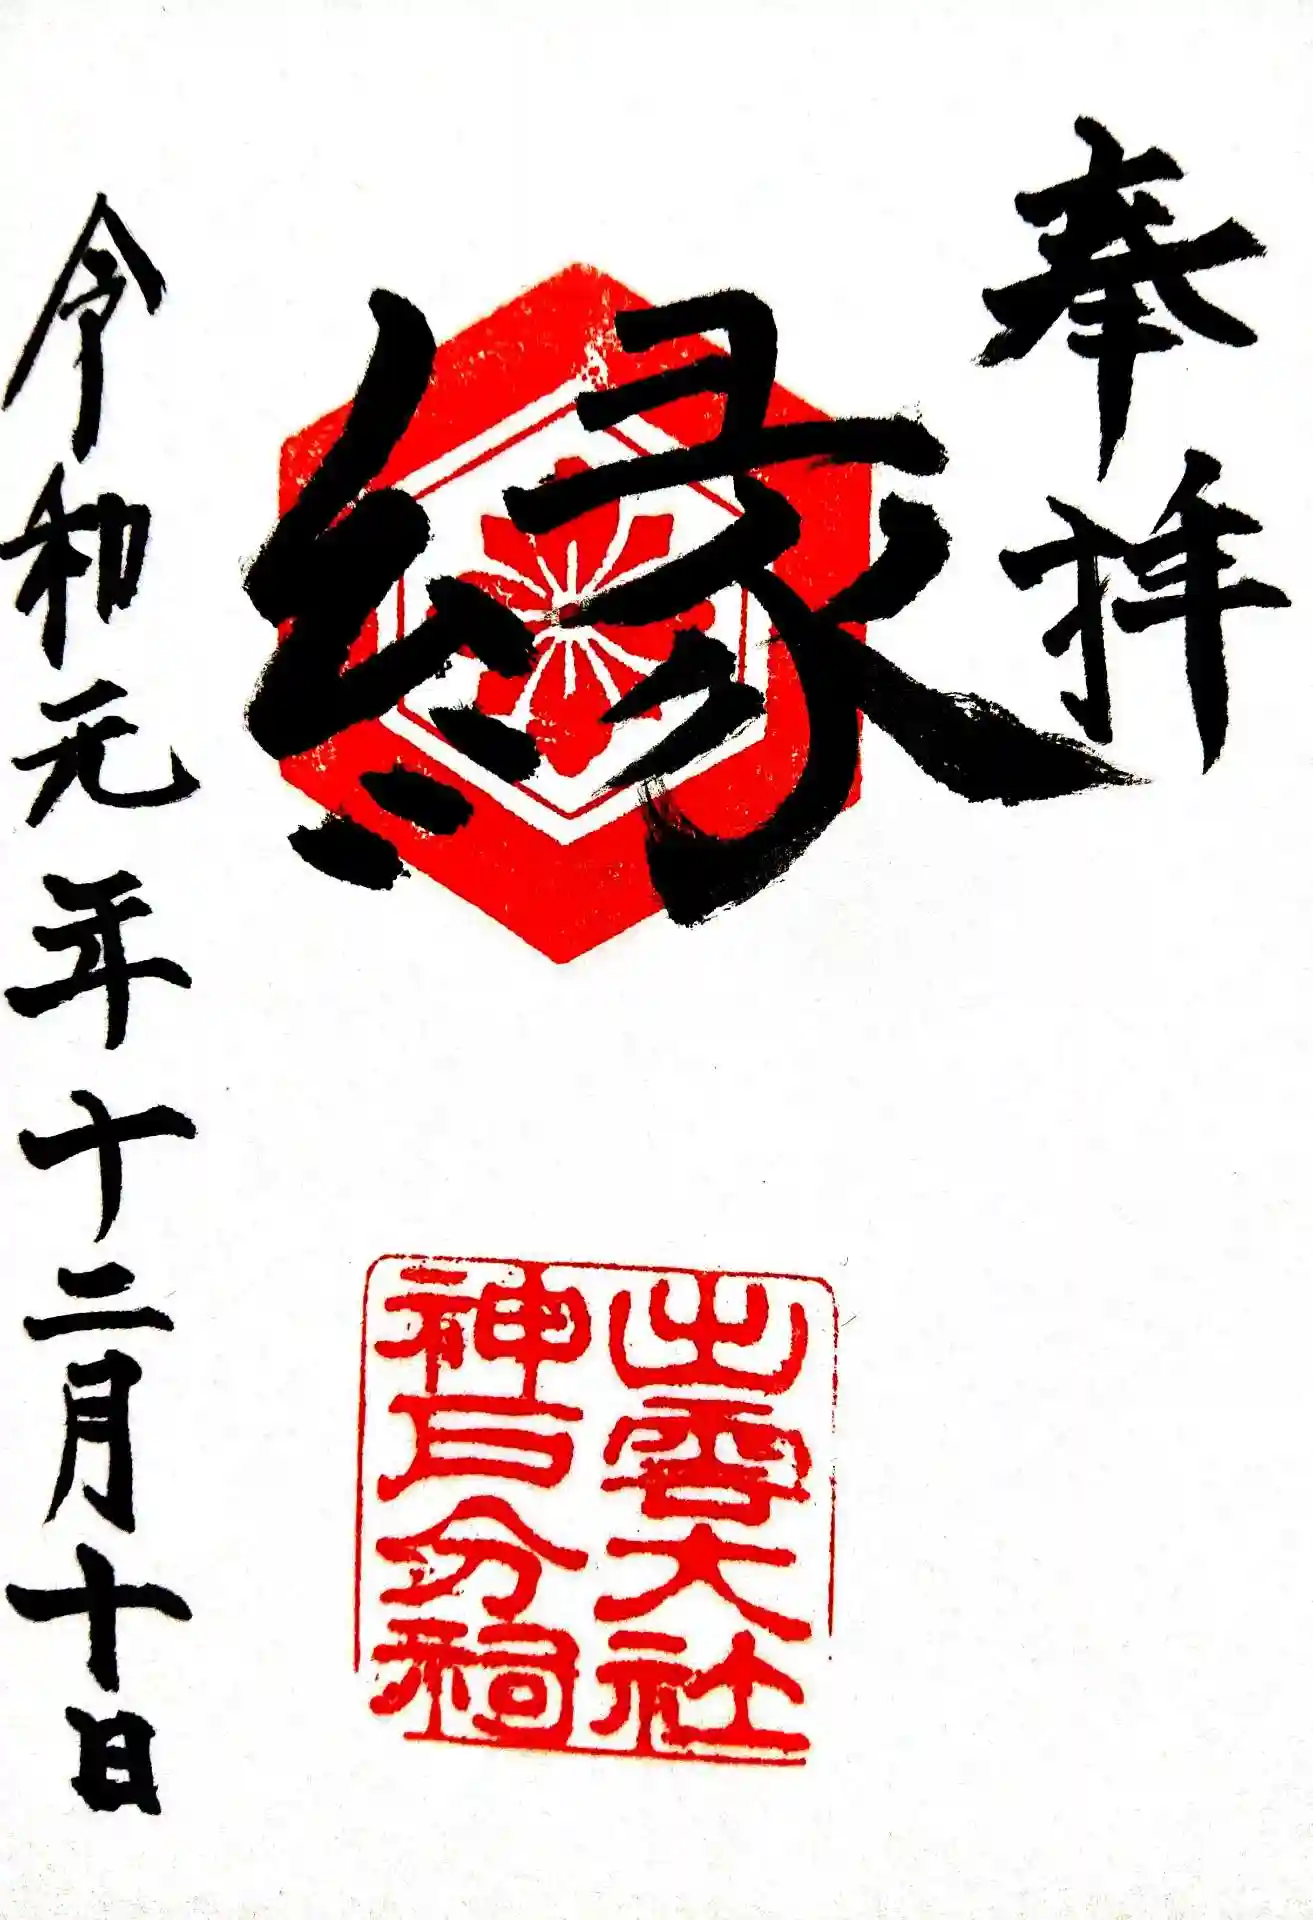 奉拝
縁
出雲大社
神戸分祠
令和元年十二月十日